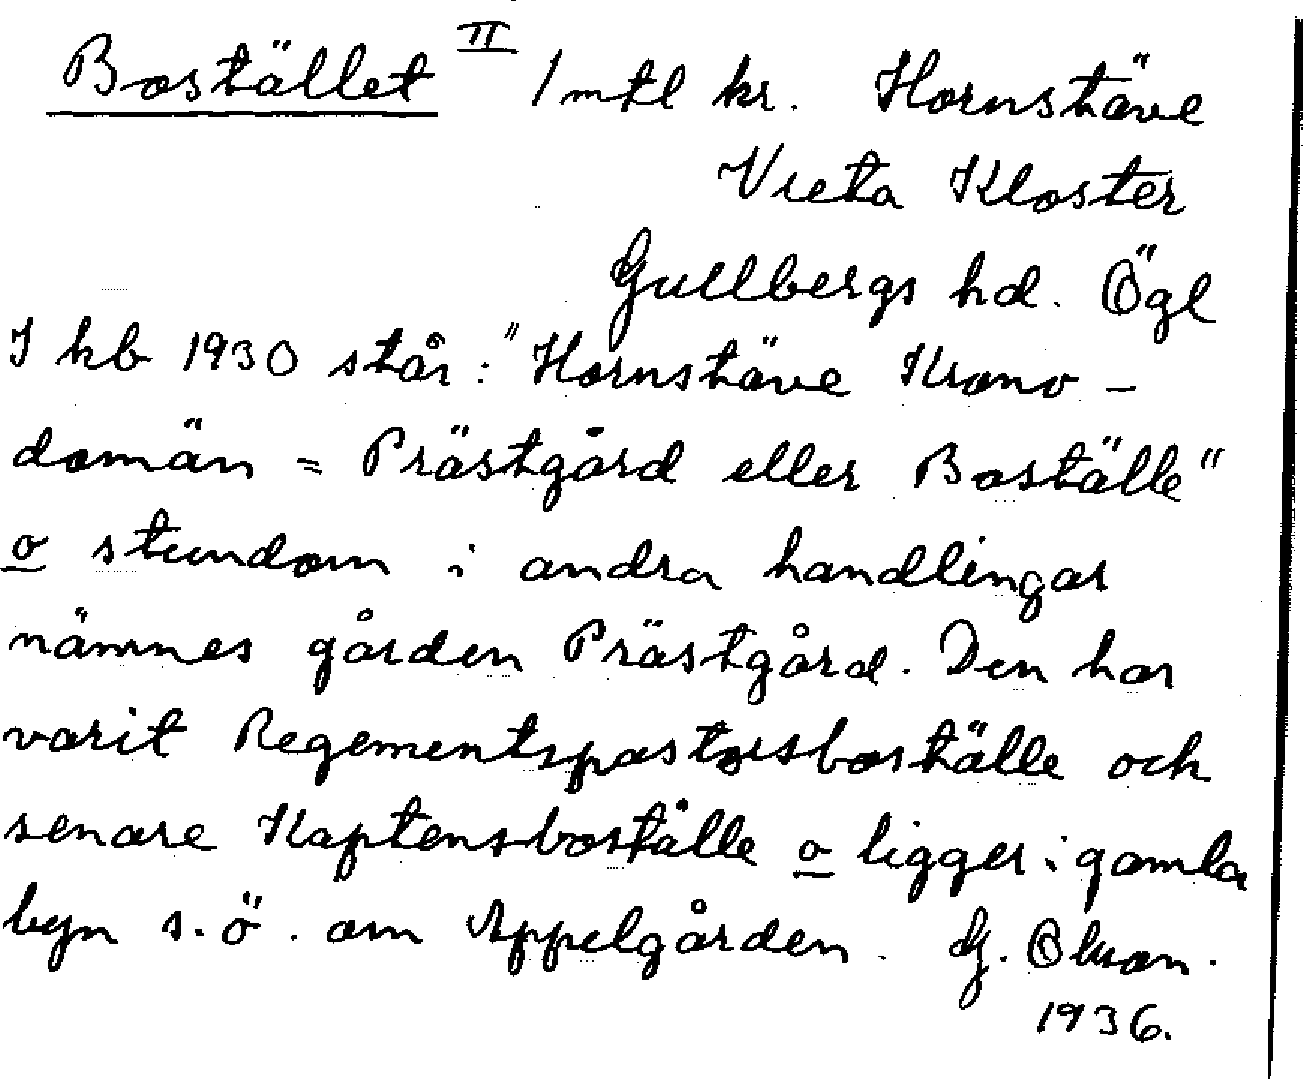 Bostället II 1 mtl kr. Hornstäve
Vreta Kloster
Gullbergs hd. Ögl
I kb 1930 står: "Hornstäve Krono-
domän = Prästgård eller Boställe"
o stundom i andra handlingar
nämnes gården Prästgård. Den har
varit Regementspastorsboställe och
senare Kaptensboställe o ligger i gamla
byn s.ö. om Appelgården. G.
1936.